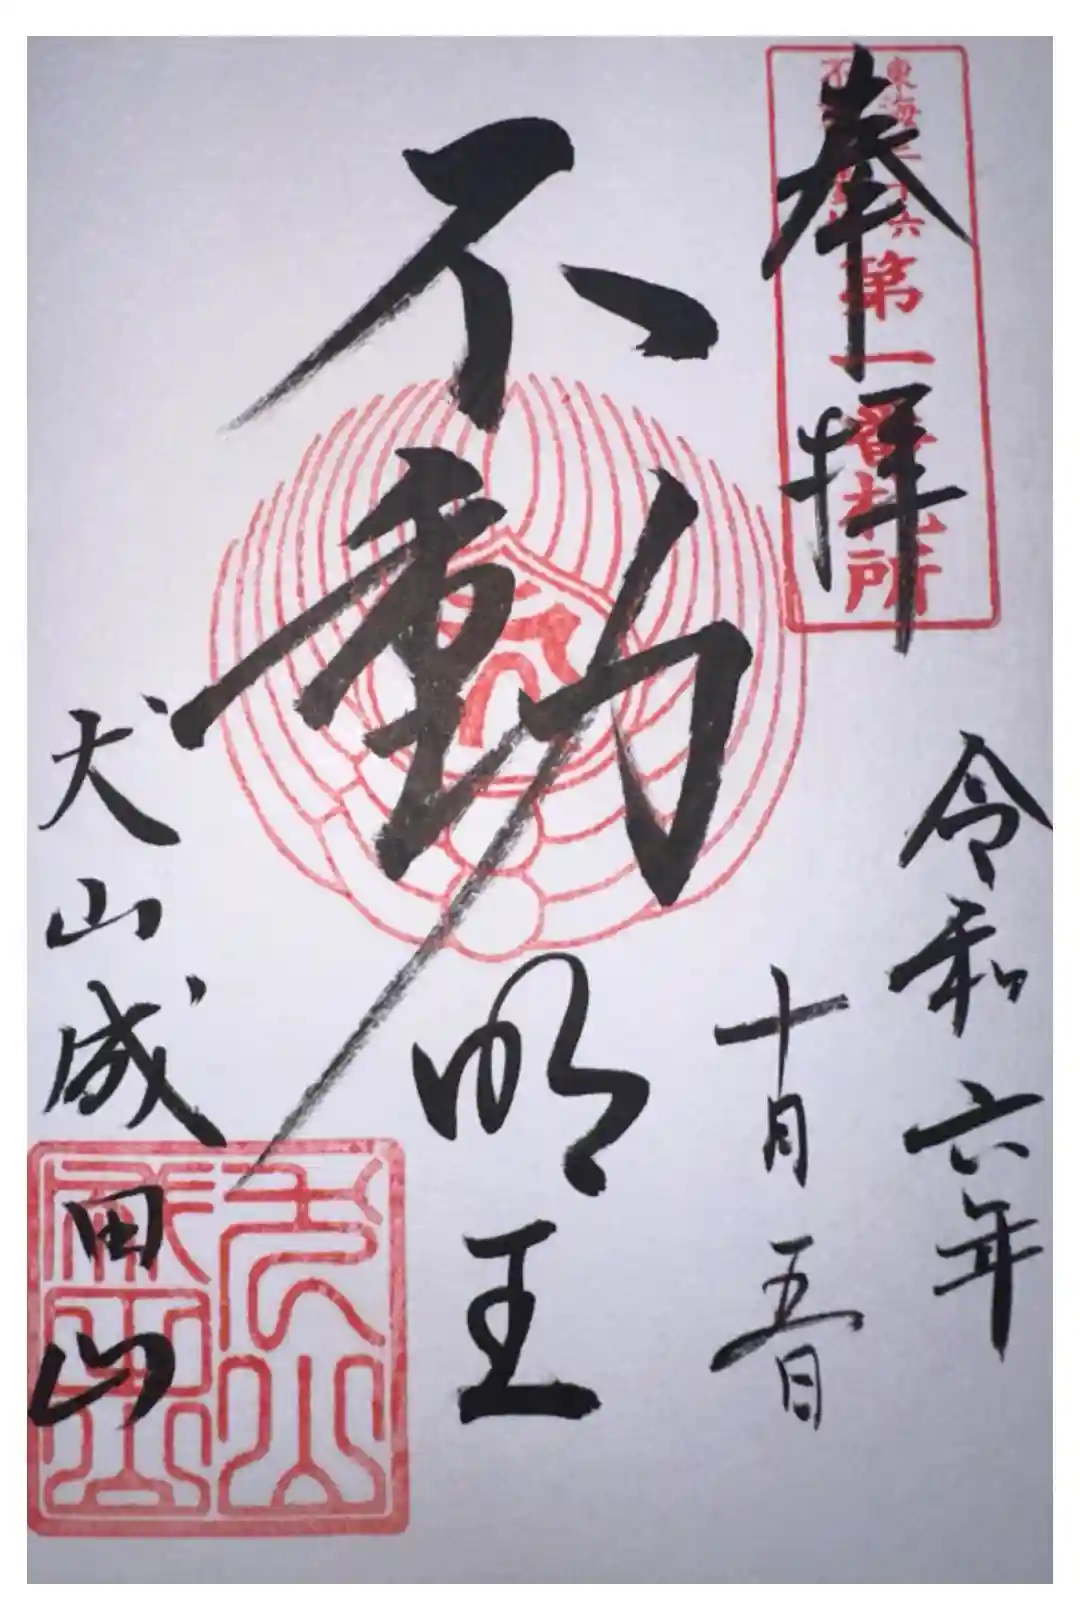 奉拝
東海三十六
不動尊霊場
第一番札所
令和六年
十月五日
不動明王
犬山成田山